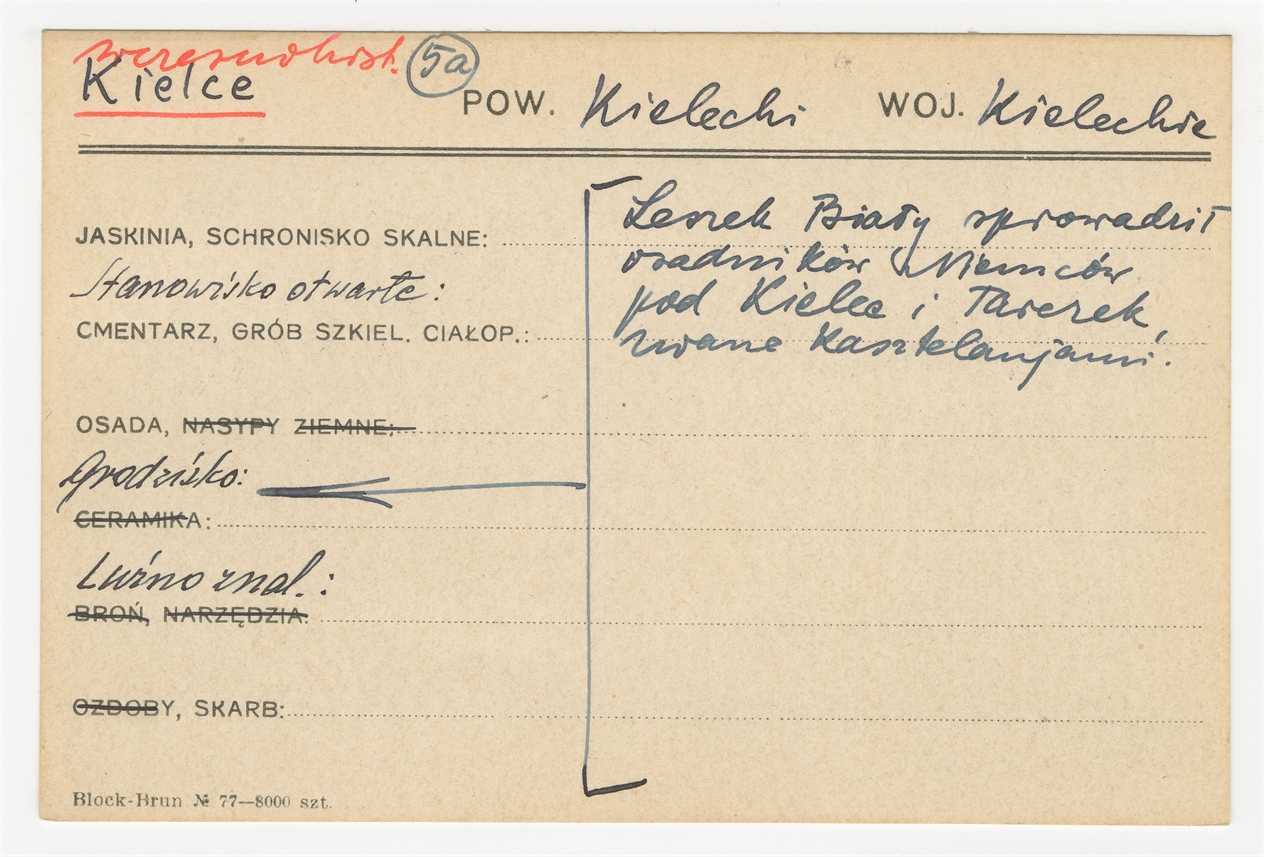 wczesnohist. 5a
Kielce POW. Kielecki WOJ. Kieleckie
JASKINIA, SCHRONISKO SKALNE:
Stanowisko otwarte:
CMENTARZ, GRÓB SZKIEL. CIAŁOP.:
OSADA, NASYPY ZIEMNE:
Grodzisko:
CERAMIKA:
Luźno znal.:
BROŃ, NARZĘDZIA:
OZDOBY, SKARB:
Block-Brun № 77—8000 szt.
Leszek Biały sprowadził
osadników Niemców
pod Kielce i Tarczek,
zwane Kasztelanjami.